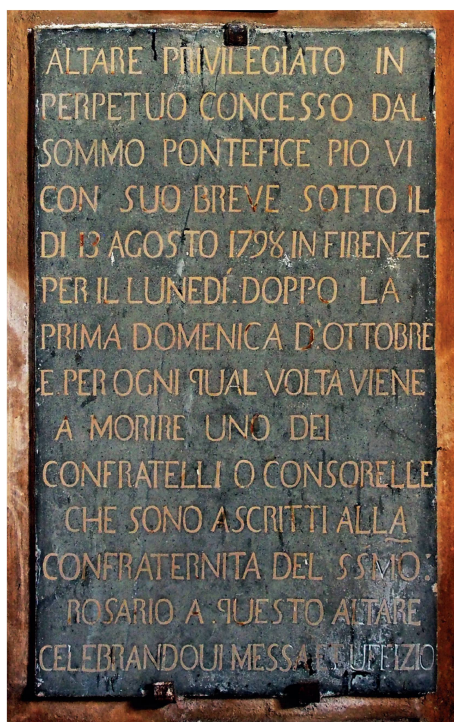 ALTARE PRIVILEGIATO IN
PERPETUO CONCESSO DAL
SOMMO PONTEFICE PIO VI
CON SUO BREVE SOTTO IL
DI 13 AGOSTO 1798. IN FIRENZE
PER IL LUNEDÍ. DOPPO LA
PRIMA DOMENICA D'OTTOBRE
E PER OGNI QUAL VOLTA VIENE
A MORIRE UNO DEI
CONFRATELLI O CONSORELLE
CHE SONO ASCRITTI ALLA
CONFRATERNITA DEL SSMO:
ROSARIO A QUESTO ALTARE
CELEBRANDOUI MESSA E UFFIZIO